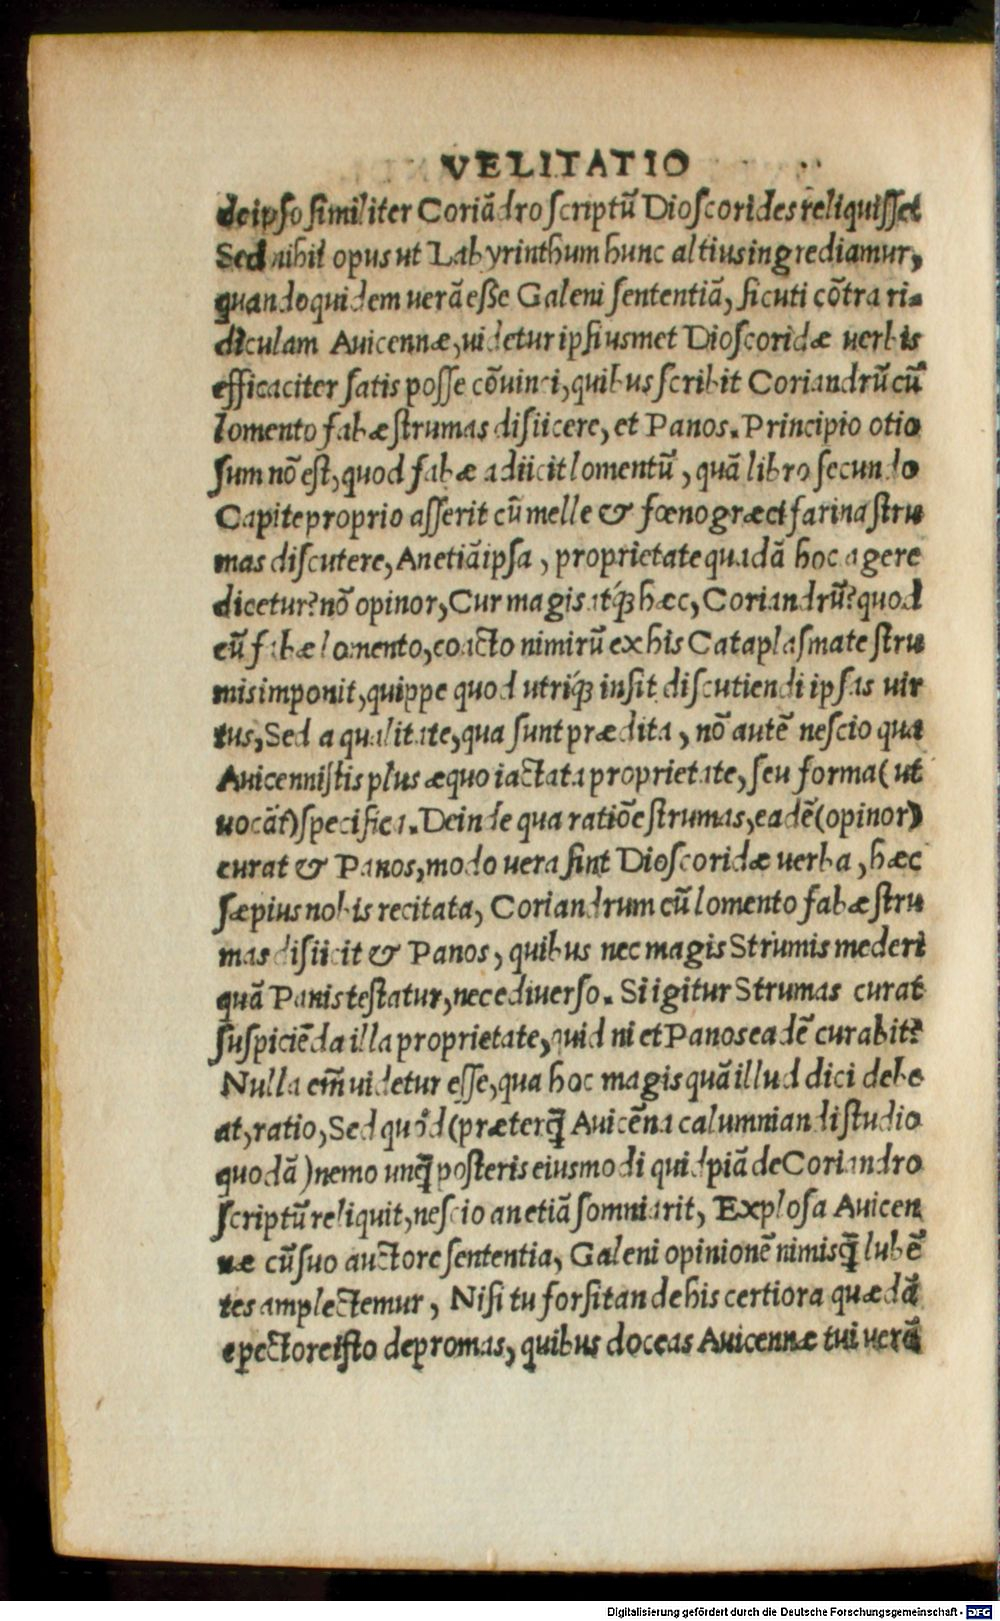 VELITATIO
de ipso similiter Coriãdro scriptũ Dioscorides reliquisset
Sed nihil opus ut Labyrinthum hunc altius ingrediamur,
quandoquidem uerã esse Galeni sententiã, sicuti cõtra ri-
diculam Auicennæ, uidetur ipsiusmet Dioscoridæ uerbis
efficaciter satis posse cõuinci, quibus scribit Coriandrũ cũ
lomento fabæ strumas disiicere, et Panos. Principio otio
sum nõ est, quod fabæ adiicit lomentũ, quã libro secundo
Capite proprio asserit cũ melle & fœnogræci farina stru
mas discutere, An etiã ipsa, proprietate quadã hoc agere
dicetur? nõ opinor, Cur magis atq́ꝫ hæc, Coriandrũ? quod
cũ fabæ lomento, coacto nimirũ ex his Cataplasmate stru
mis imponit, quippe quod utriq́ꝫ insit discutiendi ipsas uir
tus, Sed a qualitate, qua sunt prædita, nõ autẽ nescio qua
Auicennistis plus æquo iactata proprietate, seu forma (ut
uocãt) specifica. Deinde qua ratiõe strumas, eadẽ (opinor)
curat & Panos, modo uera sint Dioscoridæ uerba, hæc
sæpius nobis recitata, Coriandrum cũ lomento fabæ stru
mas disiicit & Panos, quibus nec magis Strumis mederi
quã Panis testatur, nec ediuerso. Si igitur Strumas curat
suspiciẽda illa proprietate, quid ni et Panos eadẽ curabit?
Nulla em̃ uidetur esse, qua hoc magis quã illud dici debe
at, ratio, Sed quòd (præterq̃ Auicẽna calumniandi studio
quodã) nemo unq̃ posteris eiusmodi quidpiã de Coriandro
scriptũ reliquit, nescio an etiã somniarit, Explosa Auicen
næ cũ suo auctore sententia, Galeni opinionẽ nimisq̃ lubẽ
tes amplectemur, Nisi tu forsitan de his certiora quædã
e pectore isto depromas, quibus doceas Auicennæ tui uerã
Digitalisierung gefördert durch die Deutsche Forschungsgemeinschaft - DFG